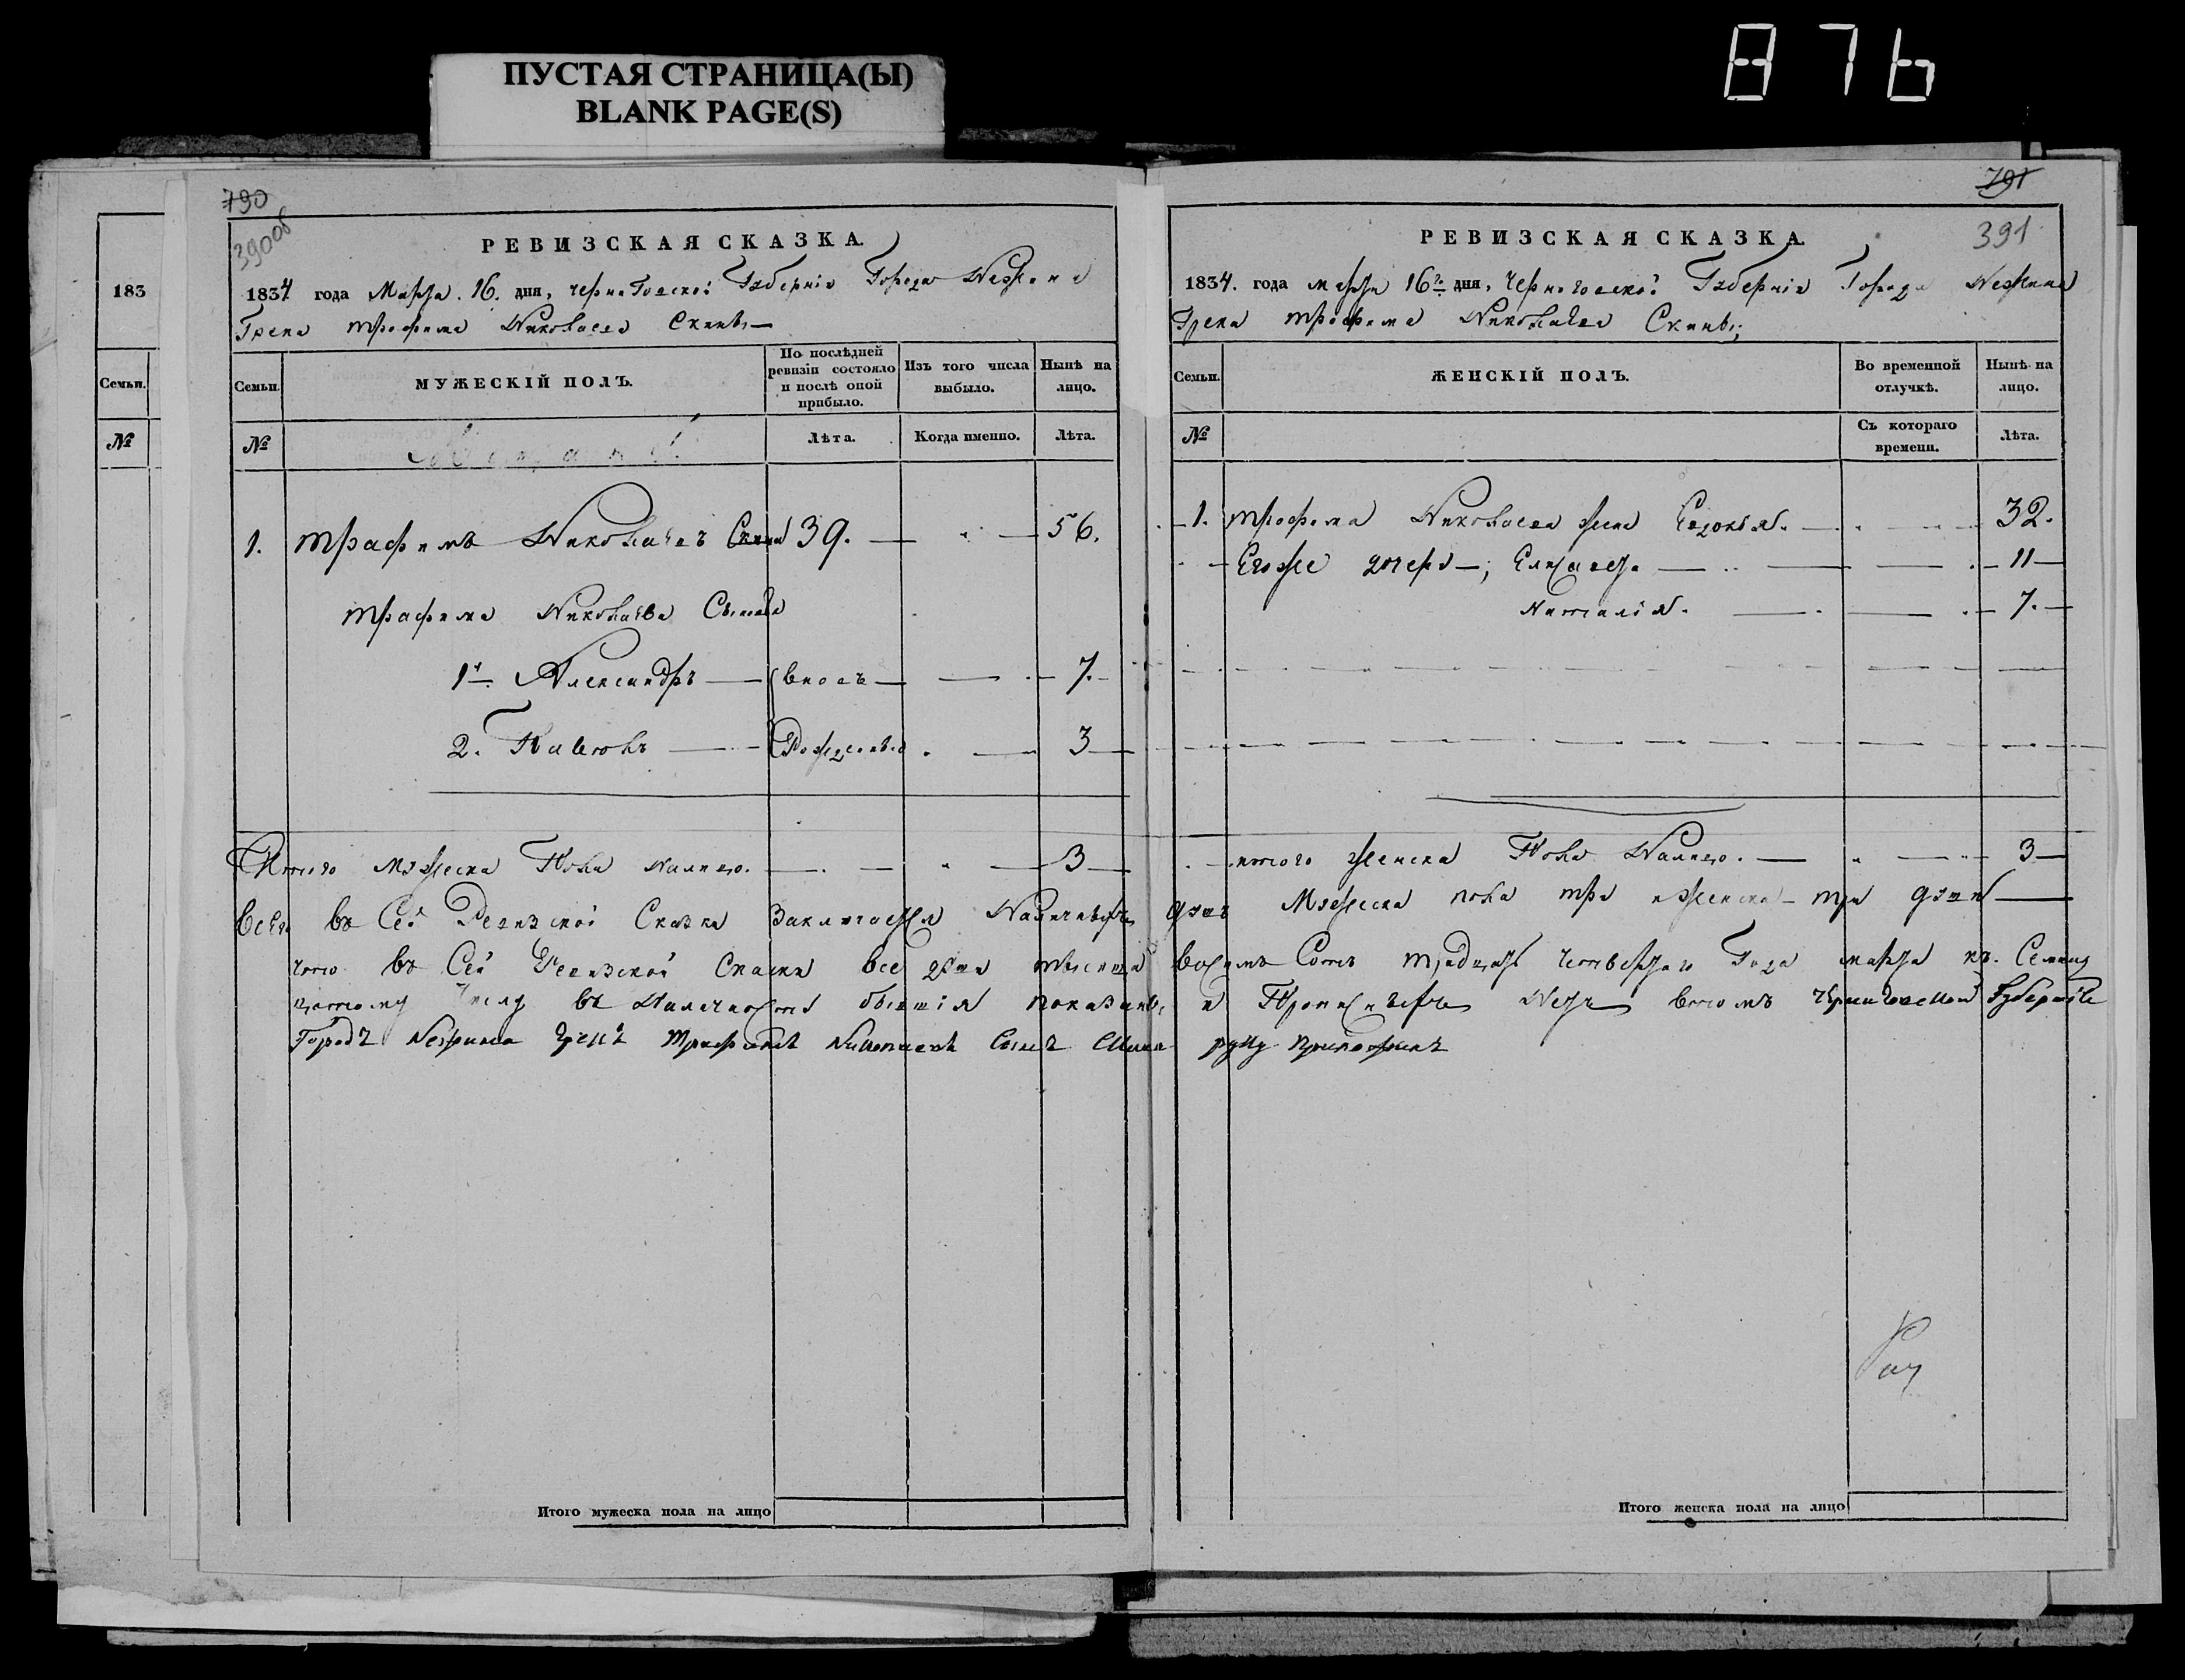 ПУСТАЯ СТРАНИЦА(Ы)
BLANK PAGE(S)
876
183
Семьи.
№
790
390об
РЕВИЗСКАЯ СКАЗКА.
1834 года Марта 16. дня, Черниговской Губерніи Города Нежина
Грека Трофима Николаева Скины
Семьи.
МУЖЕСКІЙ ПОЛЪ.
По послѣдней ревизіи состояло и послѣ оной прибыло.
Изъ того числа выбыло.
Нынѣ на лицо.
№
Лѣта.
Когда именно.
Лѣта.
1. Трафимъ Николаевъ Скина 39. 56.
Трафима Николаева Сыновья
1й Александръ вновь 7.
2. Павелъ Рожденные 3
Итого мужеска Пола Налицо. 3
791
391
РЕВИЗСКАЯ СКАЗКА.
1834. года марта 16го дня, Черниговской Губерніи Города Нежина
Грека Трофима Николаева Скины;
Семьи.
ЖЕНСКІЙ ПОЛЪ.
Во временной отлучкѣ.
Нынѣ на лицо.
№
Съ котораго времени.
Лѣта.
1. Трофима Николаева жена Евдокія. 32.
Егоже дочери, Елисавета 11
Наталія. 7.
итого женска Пола Налицо. 3
Всего въ Сей Ревизской Сказки Заключается Наличныхъ душъ Мужеска пола три и женска три души
что въ Сей Ревизской Скаски все души тысяща восимъ Сотъ тридцать четвертаго Года марта къ
числу въ Наличности бывшія показаны и Прописныхъ Нетъ втомъ Черниговской Губерніи
Городъ Нежина Грекъ Трафимъ Николаевъ Сынъ Скина руку приложилъ
Итого мужеска пола на лицо
Итого женска пола на лицо